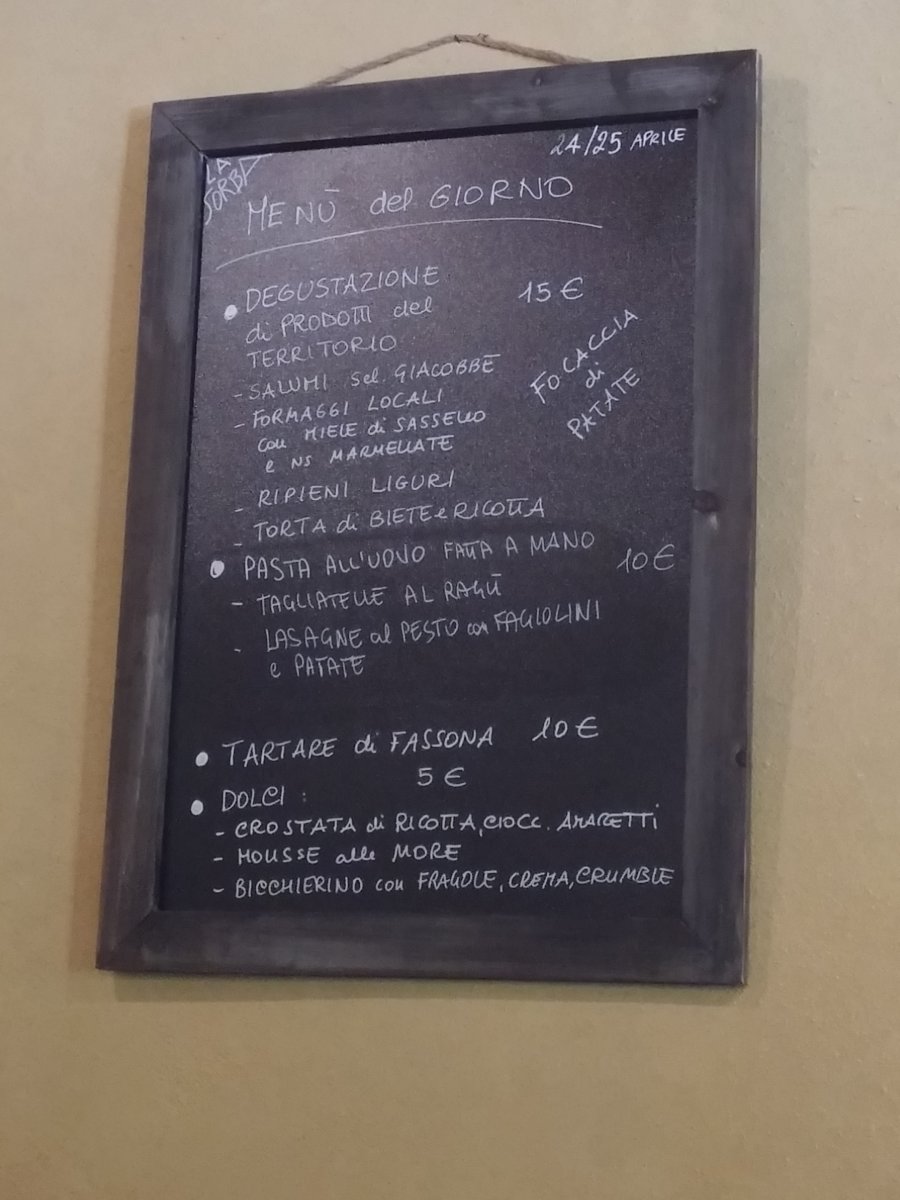 24/25 APRILE
LA
SORBA
MENÙ del GIORNO
• DEGUSTAZIONE
di PRODOTTI del
TERRITORIO
15 €
- SALUMI sel. GIACOBBE
- FORMAGGI LOCALI
con MIELE di SASSELLO
e NS MARMELLATE
FOCACCIA
di
PATATE
- RIPIENI LIGURI
- TORTA di BIETE e RICOTTA
• PASTA ALL'UOVO FATTA A MANO
10 €
- TAGLIATELLE AL RAGÙ
- LASAGNE al PESTO con FAGIOLINI
e PATATE
• TARTARE di FASSONA 10 €
• DOLCI : 5 €
- CROSTATA di RICOTTA, CIOCC. AMARETTI
- MOUSSE alle MORE
- BICCHIERINO con FRAGOLE, CREMA, CRUMBLE